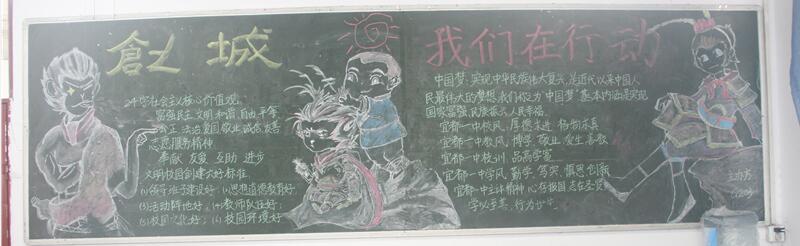 創城
24字社会主义核心价值观
富强 民主 文明 和谐 自由 平等
公正 法治 爱国 敬业 诚信 友善
志愿服务精神
奉献 友爱 互助 进步
文明校园创建六好标准
(1)领导班子建设好 (2)思想道德教育好
(3)活动阵地好 (4)教师队伍好
(5)校园文化好 (6)校园环境好
我们在行动
中国梦,实现中华民族伟大复兴,是近代以来中国人
民最伟大的梦想,我们称之为"中国梦"基本内涵是实现
国家富强、民族振兴、人民幸福。
宜都一中校风 厚德求进 格物求真
宜都一中教风 博学 敬业 爱生 善教
宜都一中校训 品高学实
宜都一中学风 勤学 笃实 慎思 创新
宜都一中主体精神 心存报国 志在圣贤
学以学差,行为世华
主办方